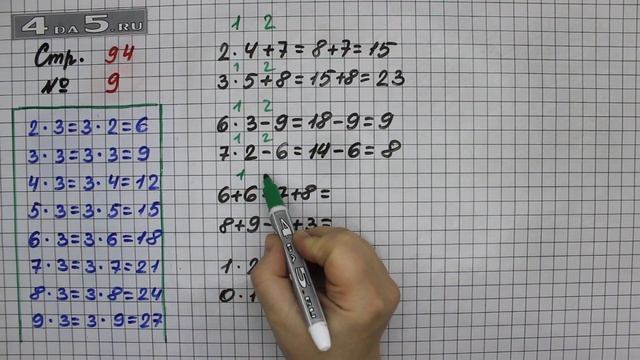 4 DA 5.RU
Стр. 94
№ 9
2·3=3·2=6
3·3=3·3=9
4·3=3·4=12
5·3=3·5=15
6·3=3·6=18
7·3=3·7=21
8·3=3·8=24
9·3=3·9=27
1 2
2·4+7=8+7=15
1 2
3·5+8=15+8=23
1 2
6·3-9=18-9=9
1 2
7·2-6=14-6=8
1
6+6-7+8=
8+9- +3=
1·2
0·1
4 DA 5.RU